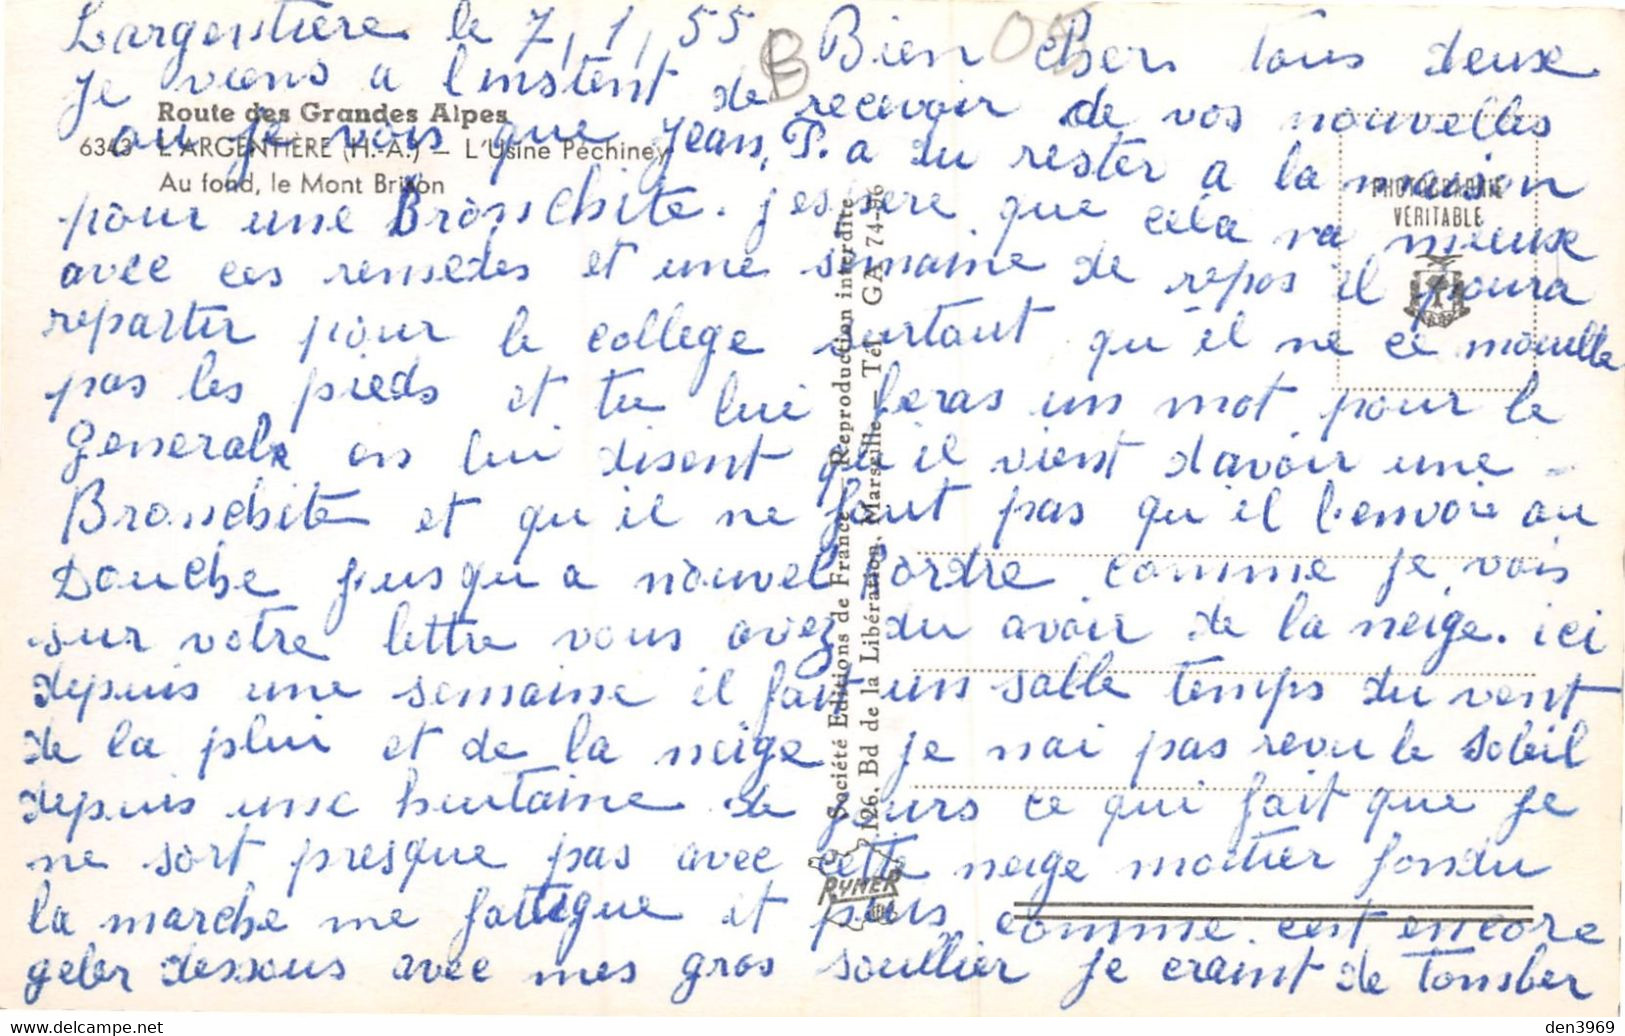 Largentière le 7, 1, 55, Bien Chers tous deux
Je viens a linstent de recevoir de vos nouvelles
ou je vois que Jean, P. a du rester a la maison
pour une Bronchite. jespere que cela va mieux
avec ces remedes et une semaine de repos il poura
repartir pour le college surtout qu'il ne ce mouille
pas les pieds et tu lui feras un mot pour le
General en lui disent qu'il vient davoir une
Bronchite et qu'il ne faut pas qu'il lenvoie au
Douche jusqu a nouvel ordre comme je vois
sur votre lettre vous avez du avoir de la neige. ici
depuis une semaine il fait un salle temps du vent
de la plui et de la neige je nai pas revu le Soleil
depuis une huitaine de jours ce qui fait que je
ne sort presque pas avec cette neige moitier fondu
la marche me fatigue et puis comme cest encore
geler dessous avec mes gros soullier je craint de tomber
B
05
Route des Grandes Alpes
6343 L'ARGENTIÈRE (H.-A.) — L'Usine Péchiney
Au fond, le Mont Brison
PHOTOGRAPHIE
VÉRITABLE
Société Editions de France — Reproduction interdite
126, Bd de la Libération, Marseille — Tél. GA 74-96
RYNER
den3969